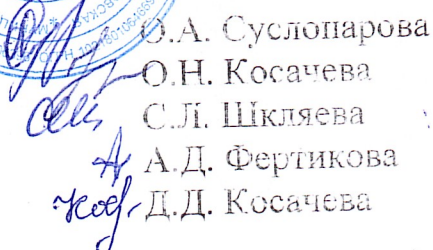 О.А. Суслопарова
О.Н. Косачева
С.Л. Шкляева
А.Д. Фертикова
Д.Д. Косачева